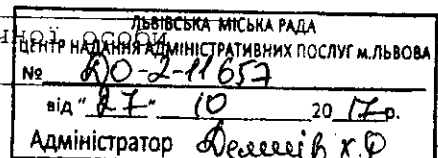 чної особи
ЛЬВІВСЬКА МІСЬКА РАДА
ЦЕНТР НАДАННЯ АДМІНІСТРАТИВНИХ ПОСЛУГ М.ЛЬВОВА
№ ДО-2-11657
від "27" 10 2017р.
Адміністратор Х.О